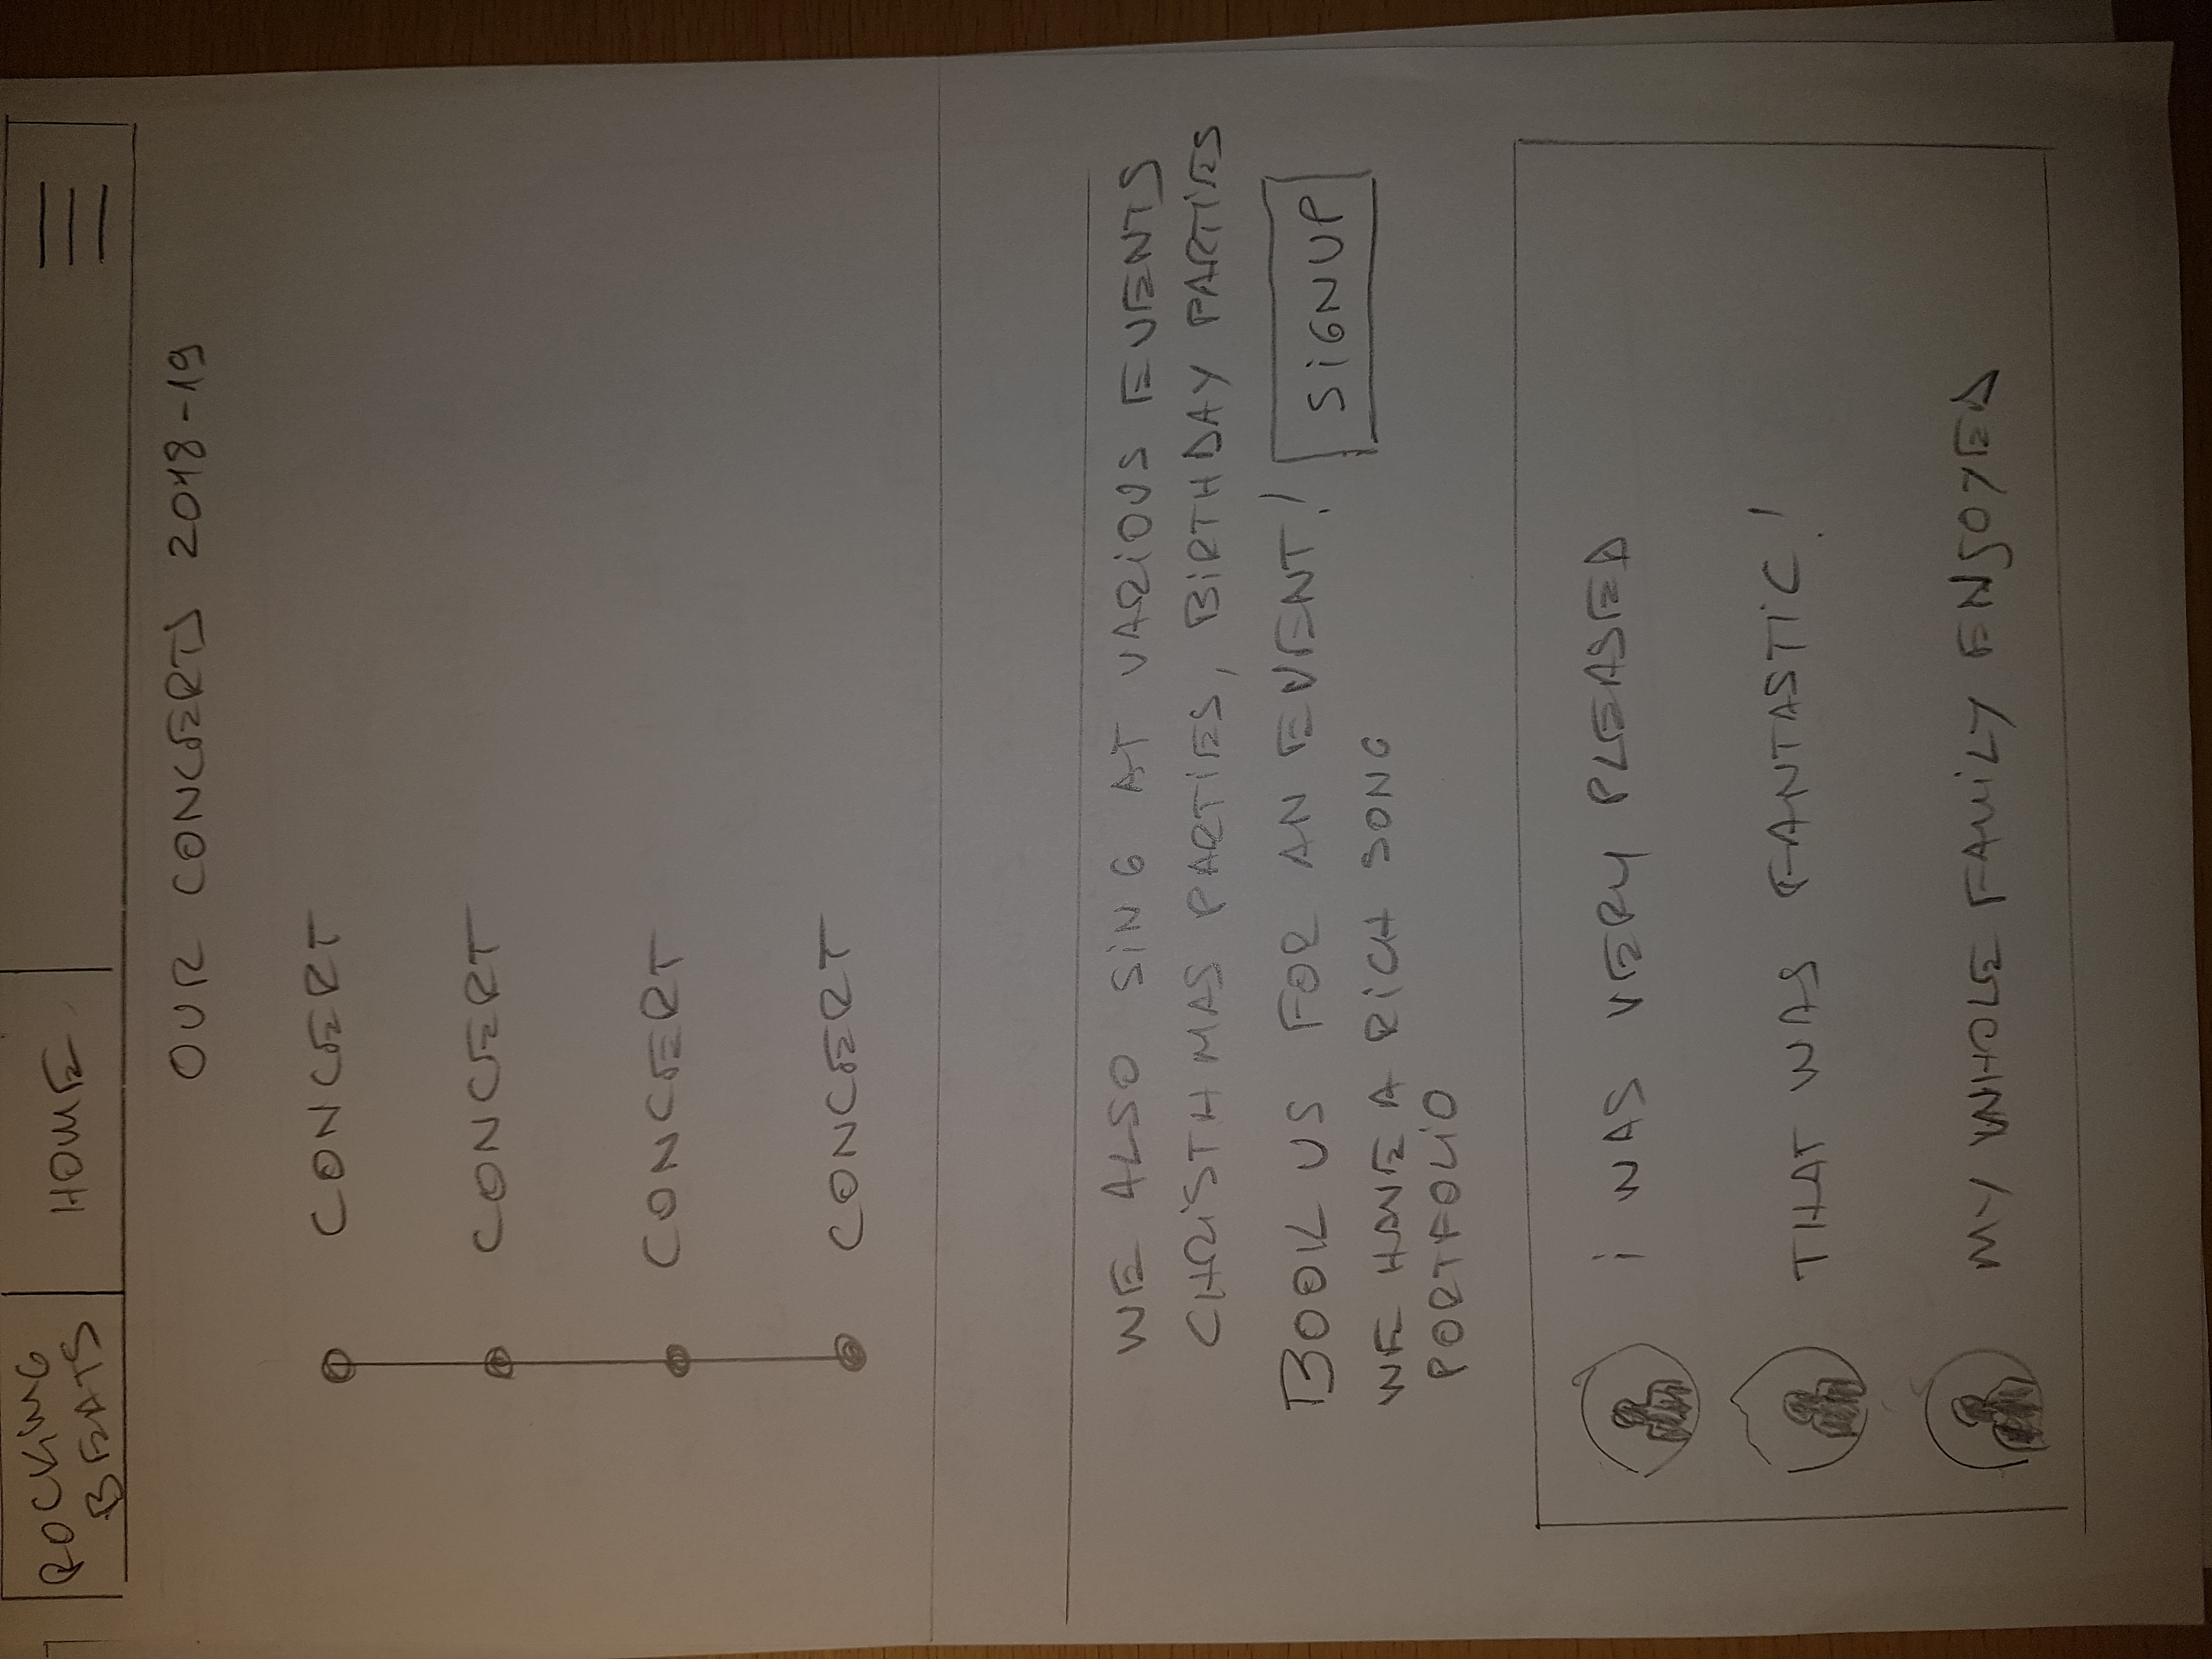 ROCKING
BEATS
HOME
OUR CONCERTS 2018-19
CONCERT
CONCERT
CONCERT
CONCERT
WE ALSO SING AT VARIOUS EVENTS
CHRISTHMAS PARTIES, BIRTHDAY PARTIES
BOOK US FOR AN EVENT!
SIGNUP
WE HAVE A RICH SONG
PORTFOLIO
I WAS VERY PLEASED
THAT WAS FANTASTIC!
MY WHOLE FAMILY ENJOYED